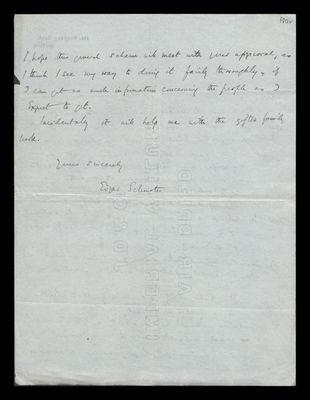 190v
I hope this general scheme will meet with your approval, as
I think I see my way to doing it fairly thoroughly, & if
I can get as much information concerning the people as I
expect to get.
Incidentally it will help me with the gifted family
work.
Yours sincerely
Edgar Schuster